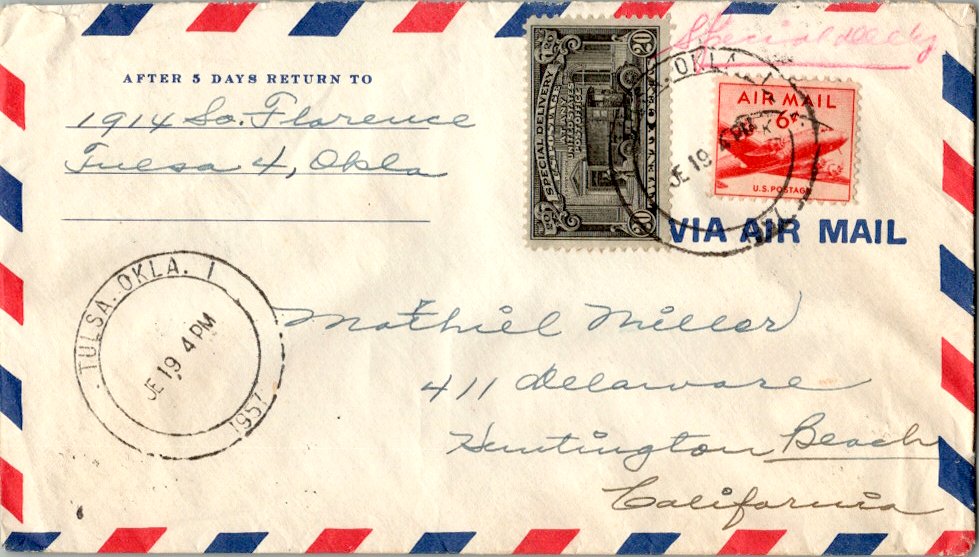 Special
AFTER 5 DAYS RETURN TO
1914 So. Florence
Tulsa 4, Okla
20 SPECIAL DELIVERY 20
UNITED STATES
POST OFFICE
AT ANY
AIR MAIL
6¢
U.S. POSTAGE
OKLA.
JE 19 4 PM
VIA AIR MAIL
TULSA, OKLA. 1
JE 19 4 PM
1957
Mathiel Miller
411 Delaware
Huntington Beach
California